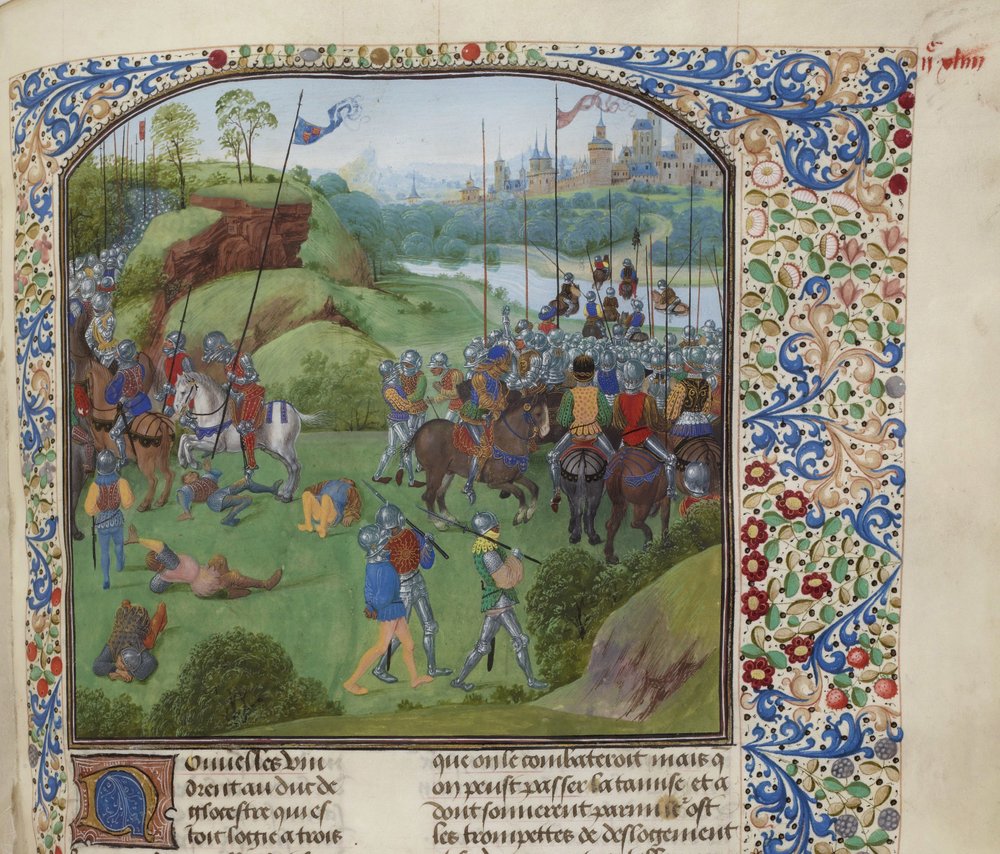 Nouuelles vin
drent au duc de
glocestre qui es
toit logie a trois
que on le combateroit mais q
on peust passer la tamise et a
dont sonnerent parmi ost
les trompettes de deslogement